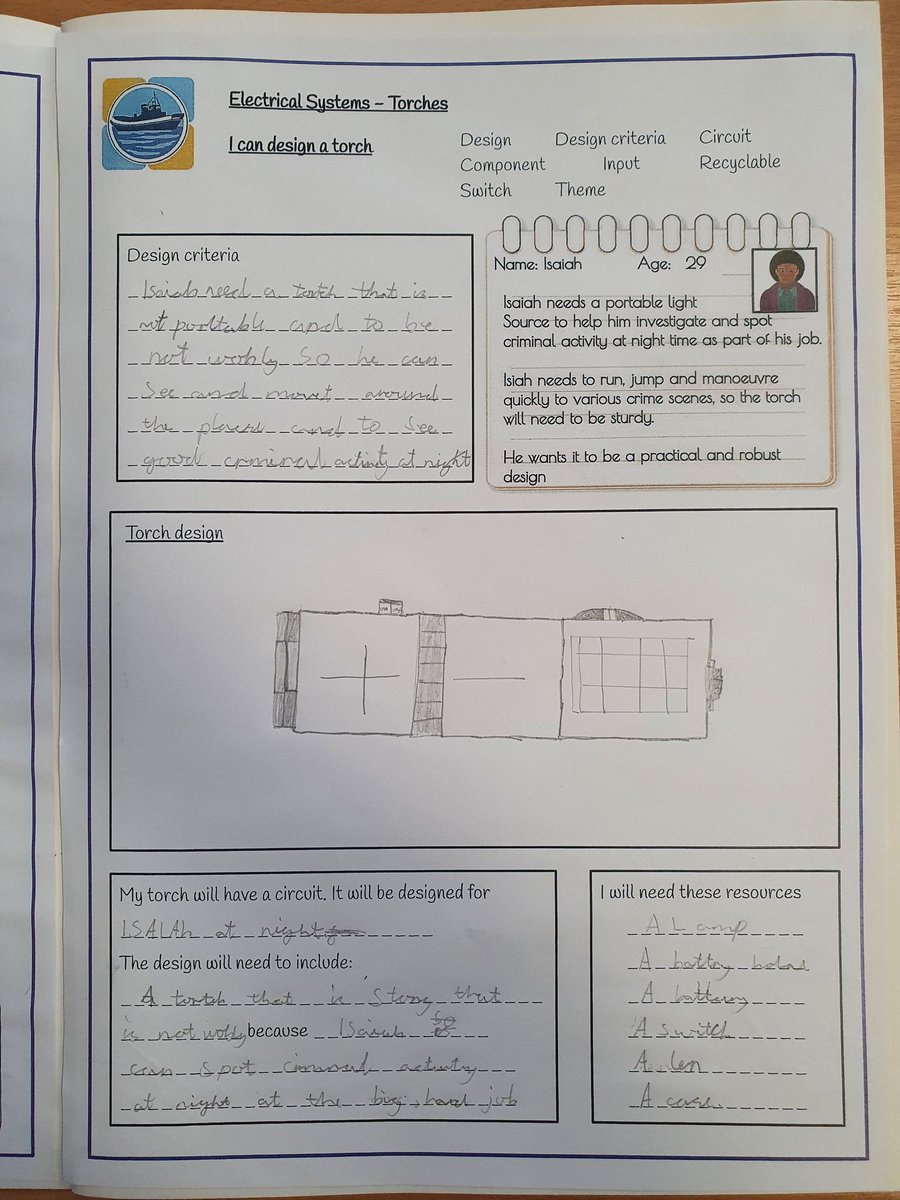 Electrical Systems – Torches
I can design a torch
Design Design criteria Circuit
Component Input Recyclable
Switch Theme
Design criteria
Isaiah need a torch that is
and to be
not wobly so he can
see and around
the and to see
good criminal activity at night
Name: Isaiah Age: 29
Isaiah needs a portable light
Source to help him investigate and spot
criminal activity at night time as part of his job.
Isiah needs to run, jump and manoeuvre
quickly to various crime scenes, so the torch
will need to be sturdy.
He wants it to be a practical and robust
design
Torch design
My torch will have a circuit. It will be designed for
ISAIAh at night
The design will need to include:
A torch that is that
is not wobly because Isaiah
can spot activity
at night at the big hard job
I will need these resources
A Lamp
A
A
A switch
A len
A case